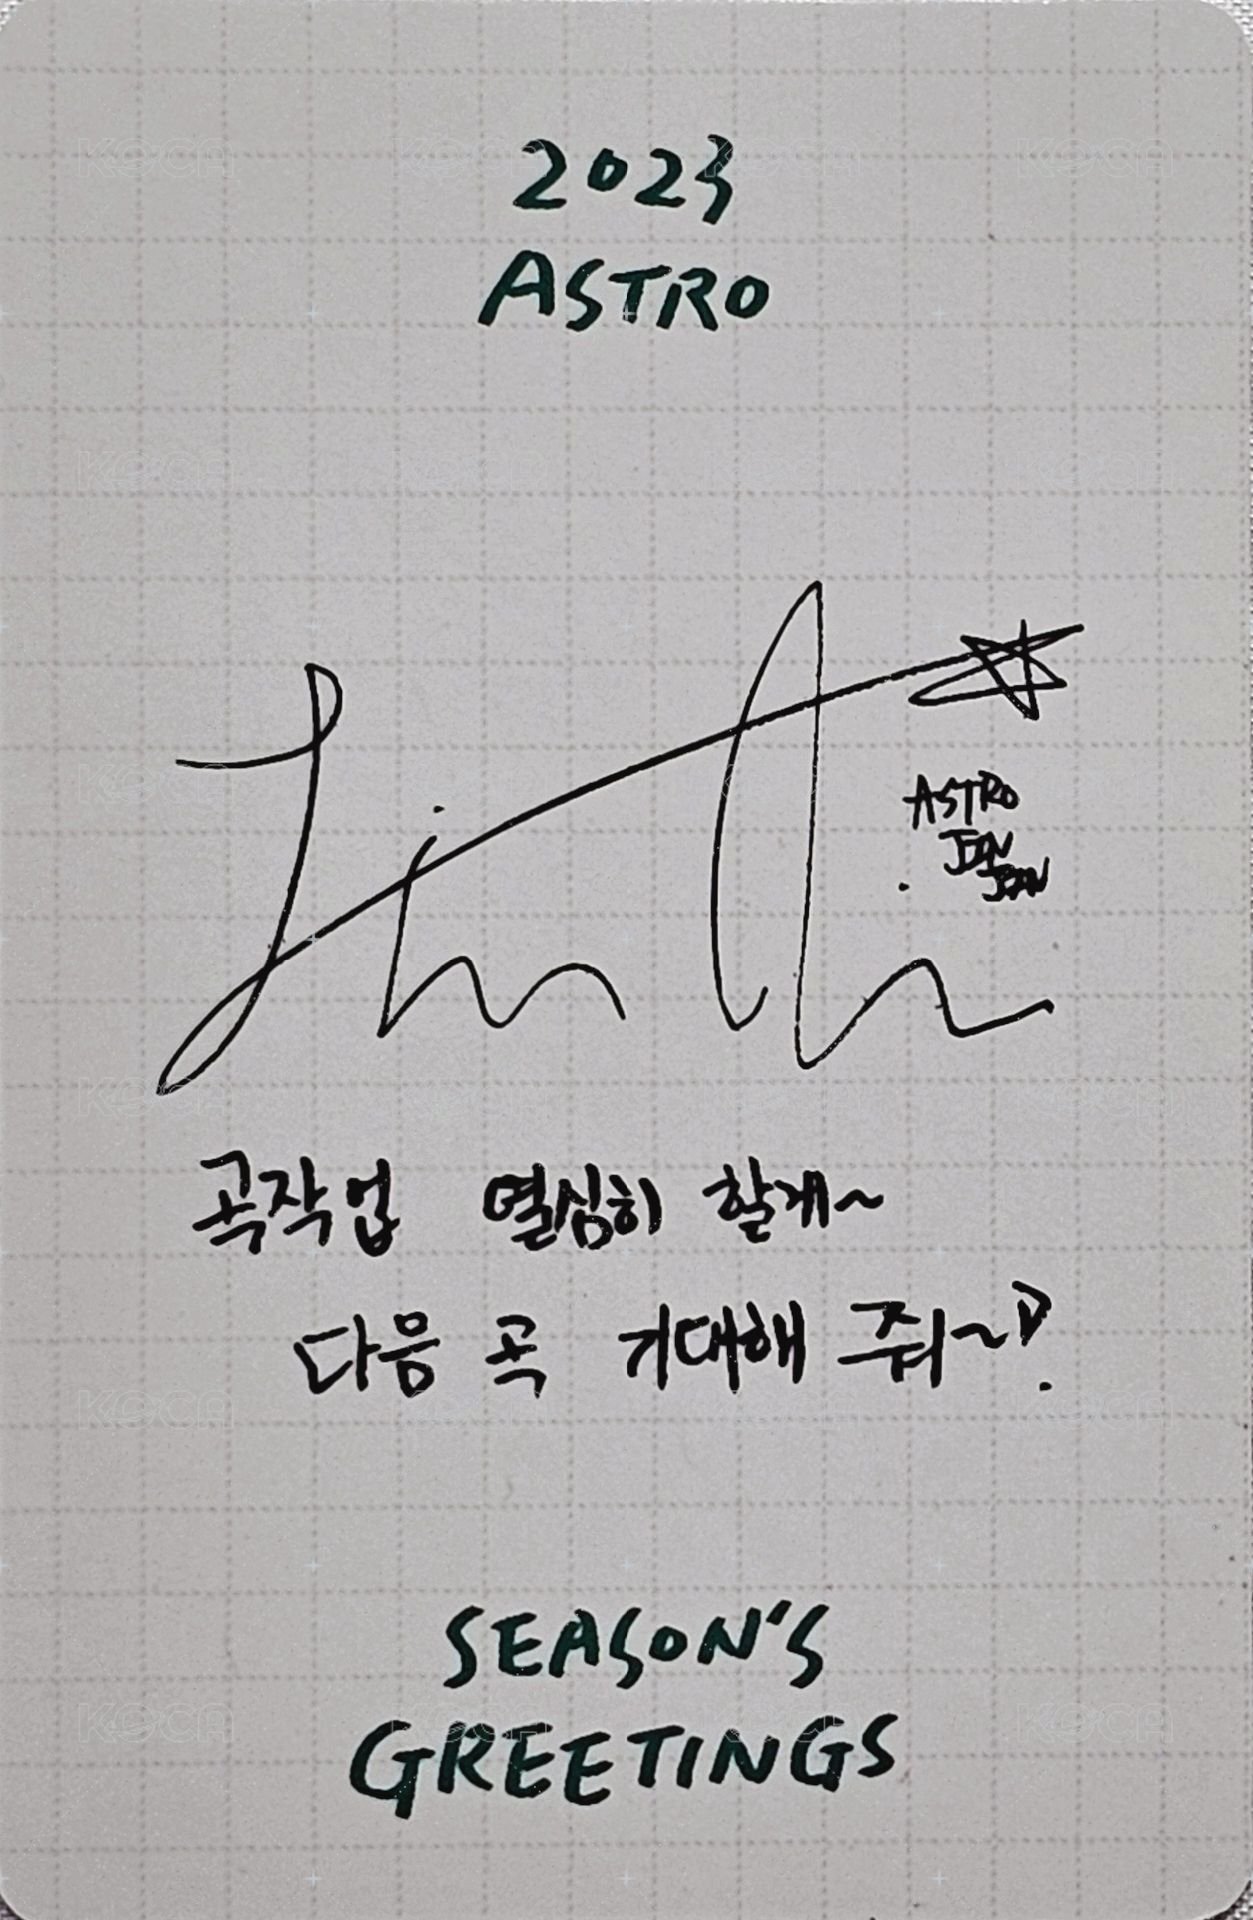 2023
ASTRO
JinJin
ASTRO
JIN
JIN
곡작업 열심히 할게~
다음 곡 기대해 줘~♡
SEASON'S
GREETINGS